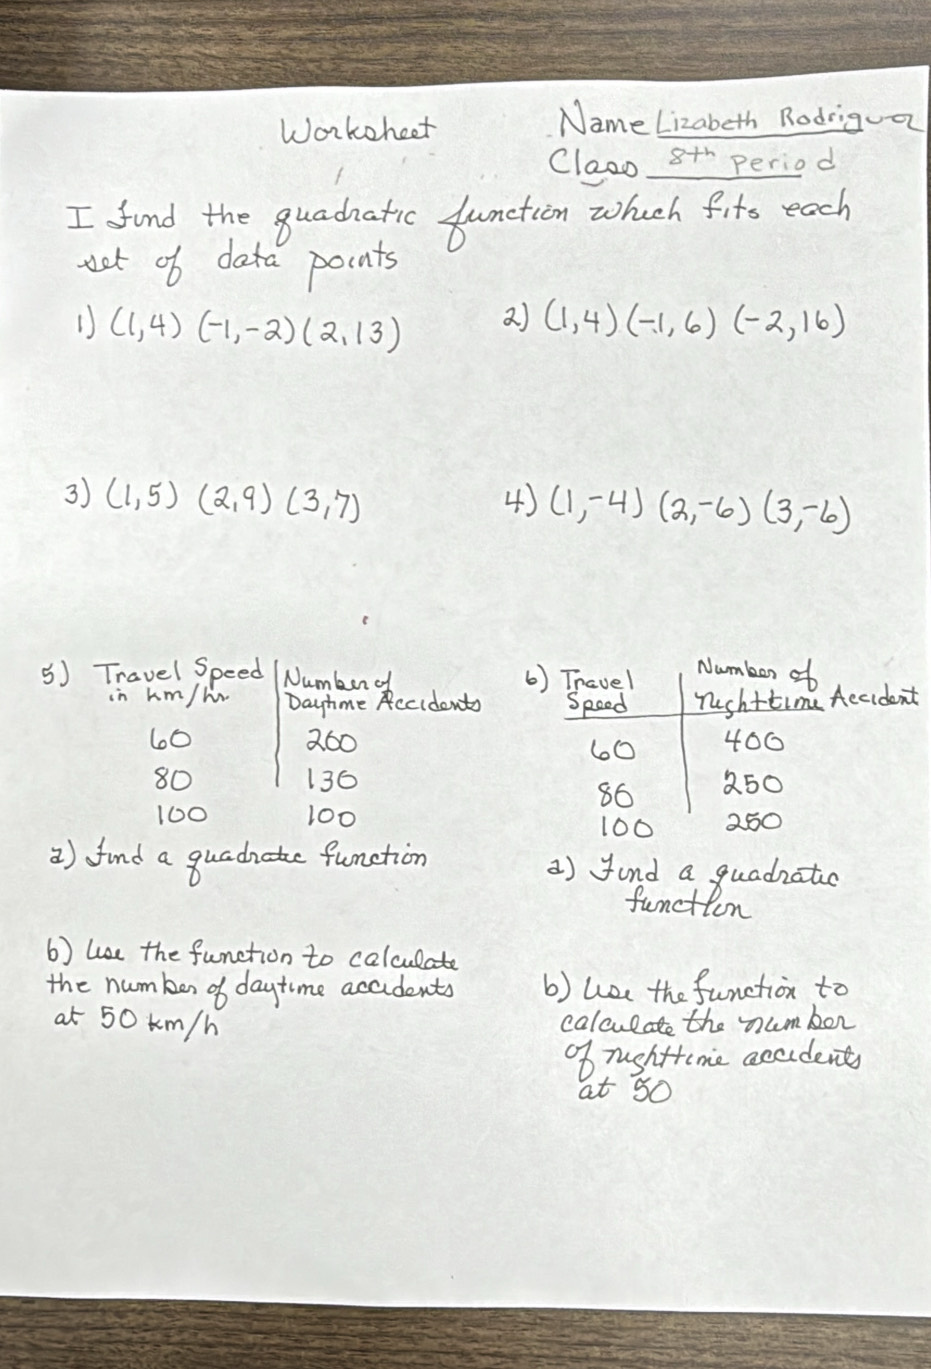 Worksheet
Name Lizabeth Rodriguez
Class 8th period
I find the quadratic function which fits each
set of data points
1) (1,4) (-1,-2) (2,13)
2) (1,4) (-1,6) (-2,16)
3) (1,5) (2,9) (3,7)
4) (1,-4) (2,-6) (3,-6)
5) Travel Speed
in km/hr
Number of
Daytime Accidents
60 200
80 130
100 100
a) find a quadratic function
b) Use the function to calculate
the number of daytime accidents
at 50 km/h
6) Travel
Speed
Number of
nighttime Accident
60 400
80 250
100 250
a) Find a quadratic
function
b) Use the function to
calculate the number
of nighttime accidents
at 50